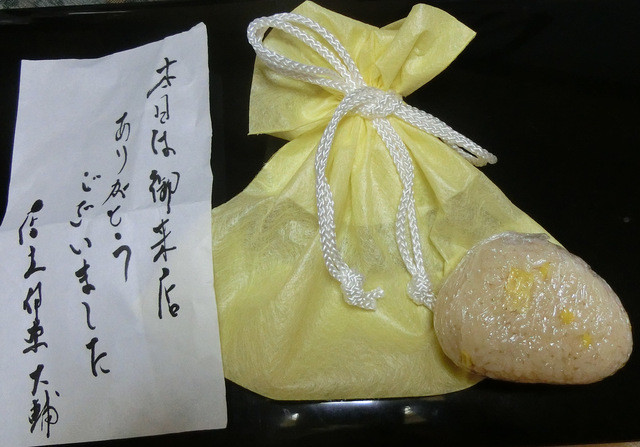 本日は御来店
ありがとう
ございました
店主 伊東大輔